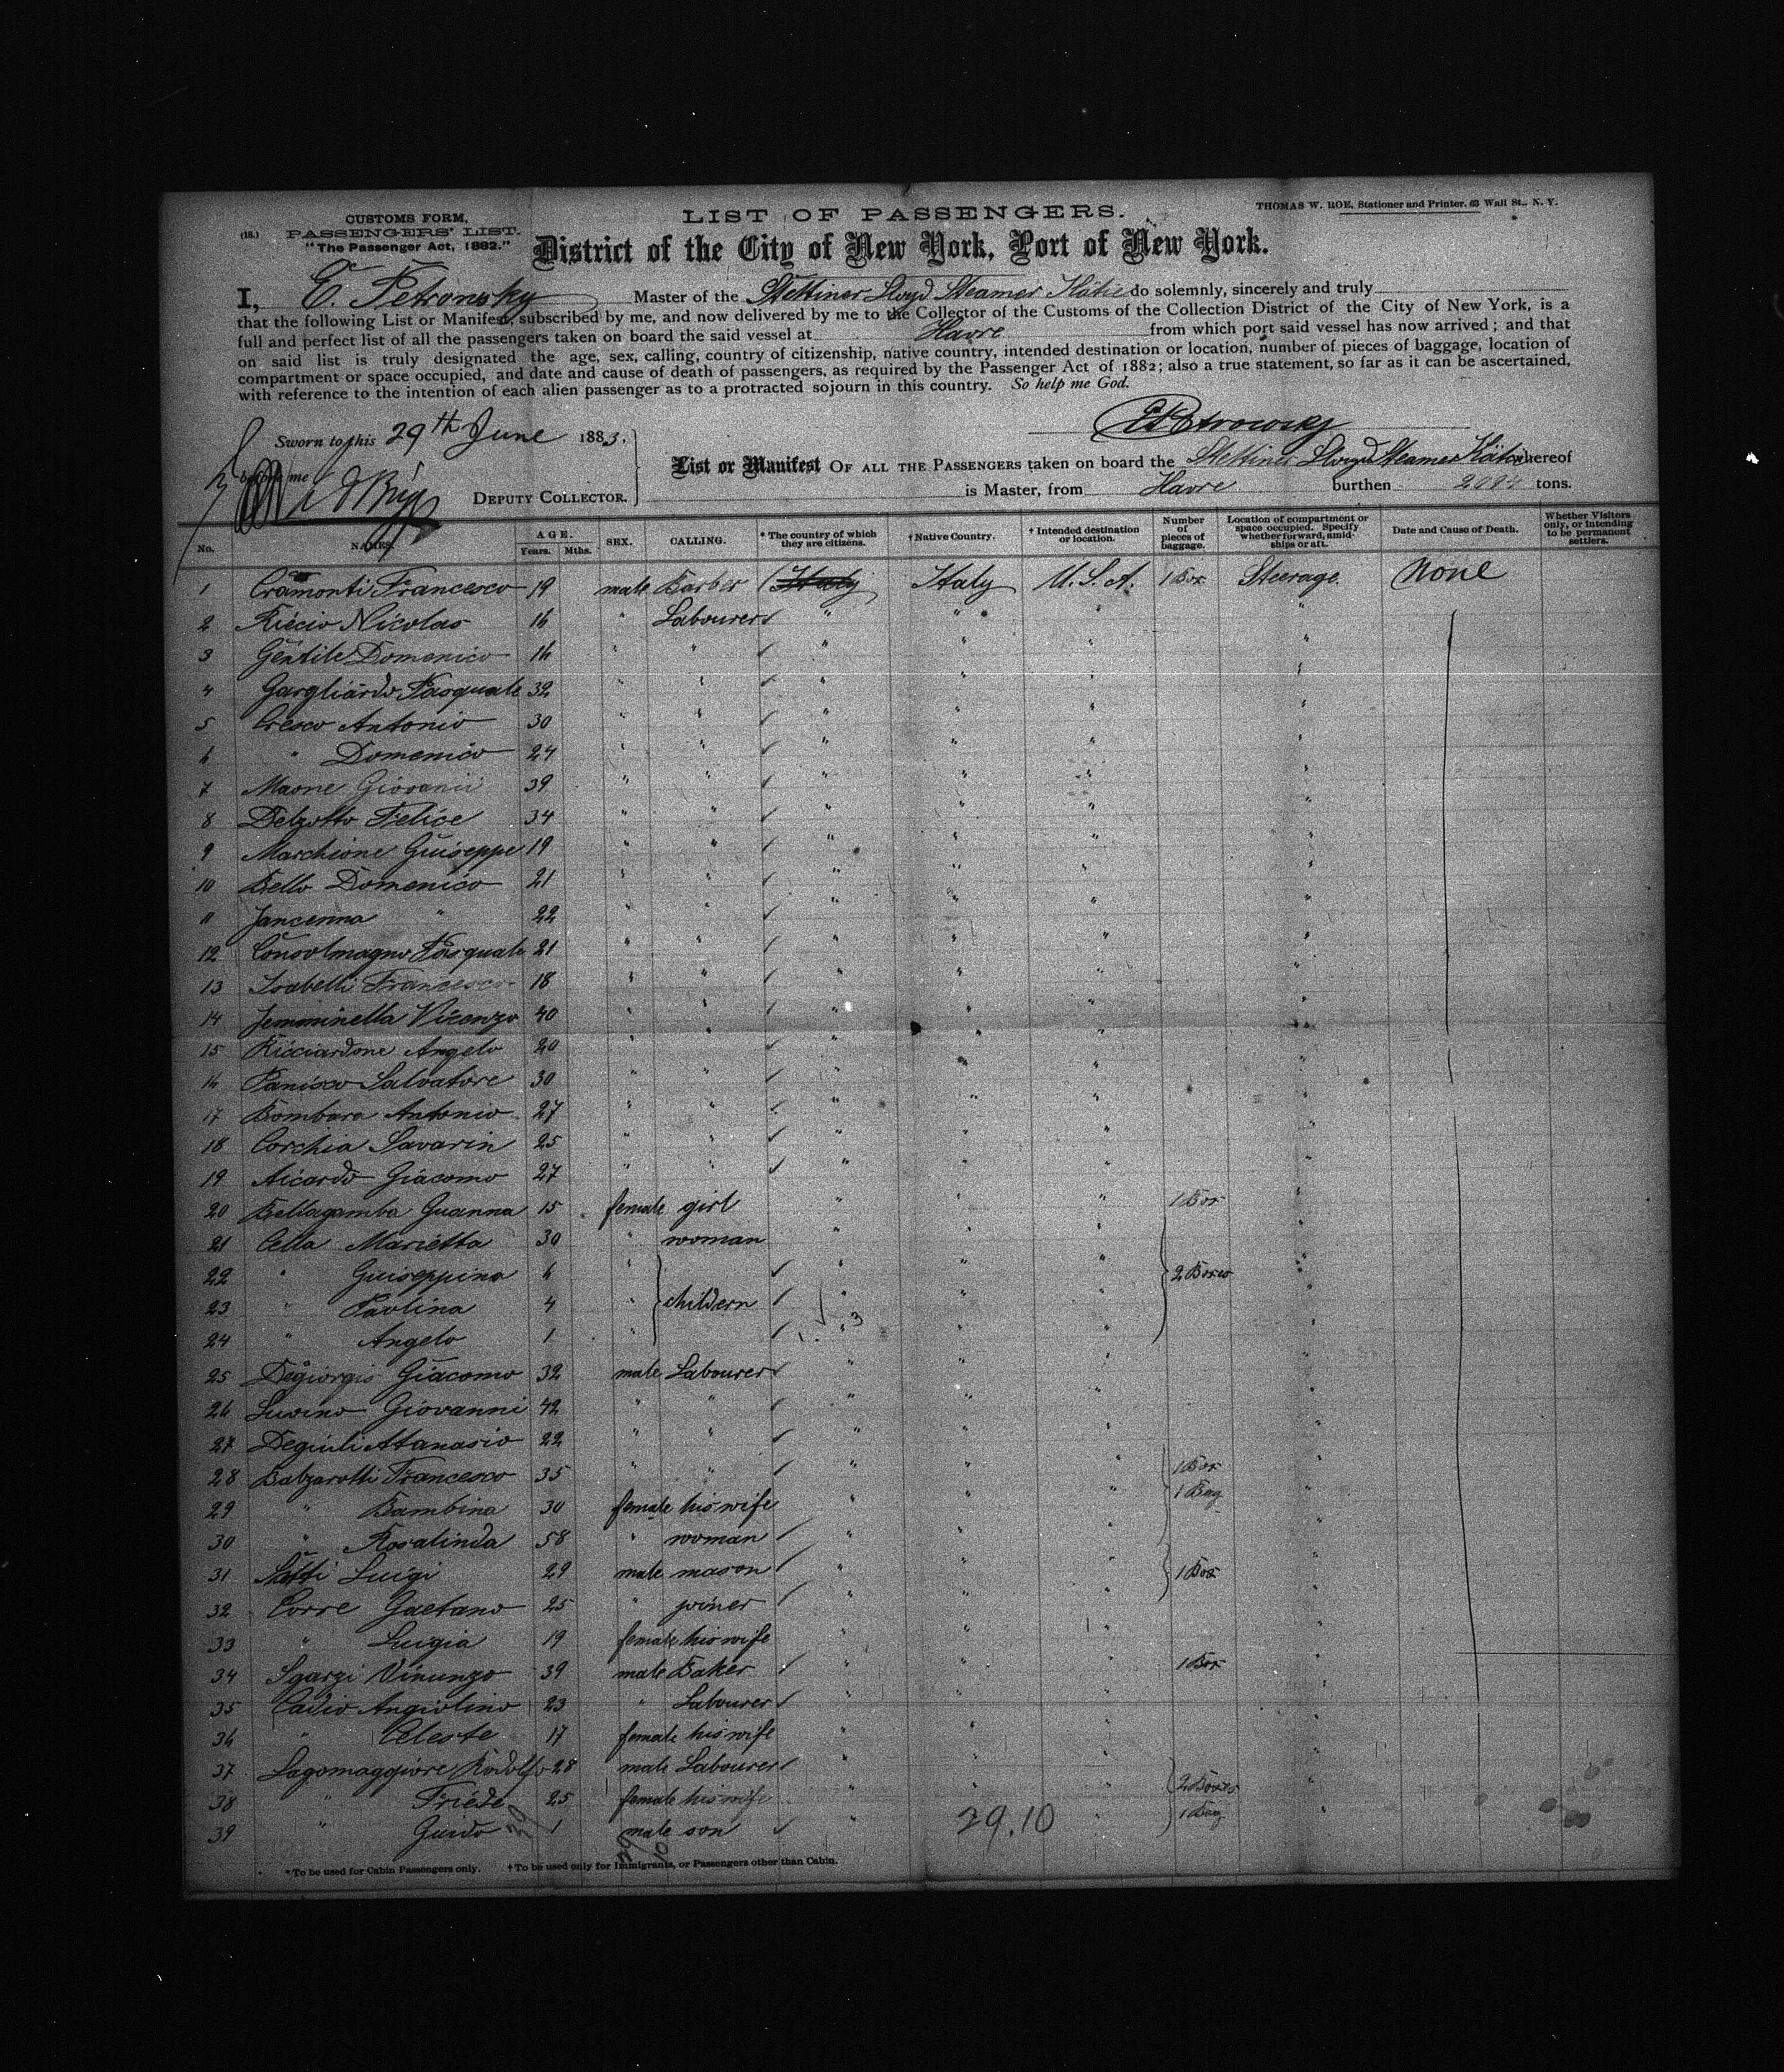 (18.)
CUSTOMS FORM,
PASSENGERS' LIST.
"The Passenger Act, 1882."
LIST OF PASSENGERS.
THOMAS W. ROE, Stationer and Printer, 63 Wall St., N. Y.
District of the City of New York, Port of New York.
I, E. Petrowsky Master of the Stettiner Lloyd Steamer Kätie do solemnly, sincerely and truly
that the following List or Manifest, subscribed by me, and now delivered by me to the Collector of the Customs of the Collection District of the City of New York, is a
full and perfect list of all the passengers taken on board the said vessel at Havre from which port said vessel has now arrived; and that
on said list is truly designated the age, sex, calling, country of citizenship, native country, intended destination or location, number of pieces of baggage, location of
compartment or space occupied, and date and cause of death of passengers, as required by the Passenger Act of 1882; also a true statement, so far as it can be ascertained,
with reference to the intention of each alien passenger as to a protracted sojourn in this country. So help me God.
Sworn to this 29th June 1883.
E Petrowsky
before me
DEPUTY COLLECTOR.
List or Manifest OF ALL THE PASSENGERS taken on board the Stettiner Lloyd Steamer Kätie whereof
is Master, from Havre burthen tons.
No. NAMES. AGE. Years. Mths. SEX. CALLING. * The country of which they are citizens. † Native Country. † Intended destination or location. Number of pieces of baggage. Location of compartment or space occupied. Specify whether forward, amidships or aft. Date and Cause of Death. Whether Visitors only, or intending to be permanent settlers.
1 Cramonti Francesco 19 male Barber Italy Italy U.S.A. 1 Box Steerage. None
2 Riccio Nicolas 16 " Labourer " " " "
3 Gentile Domenico 16 " " " " " "
4 Gargliardo Pasquale 32 " " " " " "
5 Cresco Antonio 30 " " " " " "
6 " Domenico 24 " " " " " "
7 Maone Giovanii 39 " " " " " "
8 Delzotto Felice 34 " " " " " "
9 Marchione Guiseppe 19 " " " " " "
10 Bello Domenico 21 " " " " " "
11 Jancenna " 22 " " " " " "
12 Consolmagno Pasquale 21 " " " " " "
13 Isabelli Francesco 18 " " " " " "
14 Jemminella Vicenzo 40 " " " " " "
15 Ricciardone Angelo 20 " " " " " "
16 Panisco Salvatore 30 " " " " " "
17 Bombara Antonio 27 " " " " " "
18 Corchia Savarin 25 " " " " " "
19 Aicardo Giacomo 27 " " " " " "
20 Bellagamba Guanna 15 female girl " " " 1 Box "
21 Cella Marietta 30 " woman " " " "
22 " Guiseppina 6 " " " " 2 Boxes "
23 " Paolina 4 " childern " " " "
24 " Angelo 1 " " 3 " " "
25 Degiorgis Giacomo 32 male Labourer " " " "
26 Luvino Giovanni 42 " " " " " "
27 Degiuli Attanasio 22 " " " " " "
28 Balzarotti Francesco 35 " " " " " 1 Box "
29 " Bambina 30 female his wife " " " 1 Bag "
30 " Rosalinda 58 " woman " " " "
31 Luigi 29 male mason " " " 1 Box "
32 Corre Gaetano 25 " joiner " " " "
33 " Luigia 19 female his wife " " " "
34 Sgarzi Vinunzo 39 male Baker " " " 1 Box "
35 Cadio Angiolino 23 " Labourer " " " "
36 " Celeste 17 female his wife " " " "
37 Lagomaggiore Rodolfo 28 male Labourer " " " "
38 " Friede 25 female his wife " " 2 Boxes "
39 " Guido 1 male son " 29.10 " 1 Bag "
39
29
10
* To be used for Cabin Passengers only. † To be used only for Immigrants, or Passengers other than Cabin.